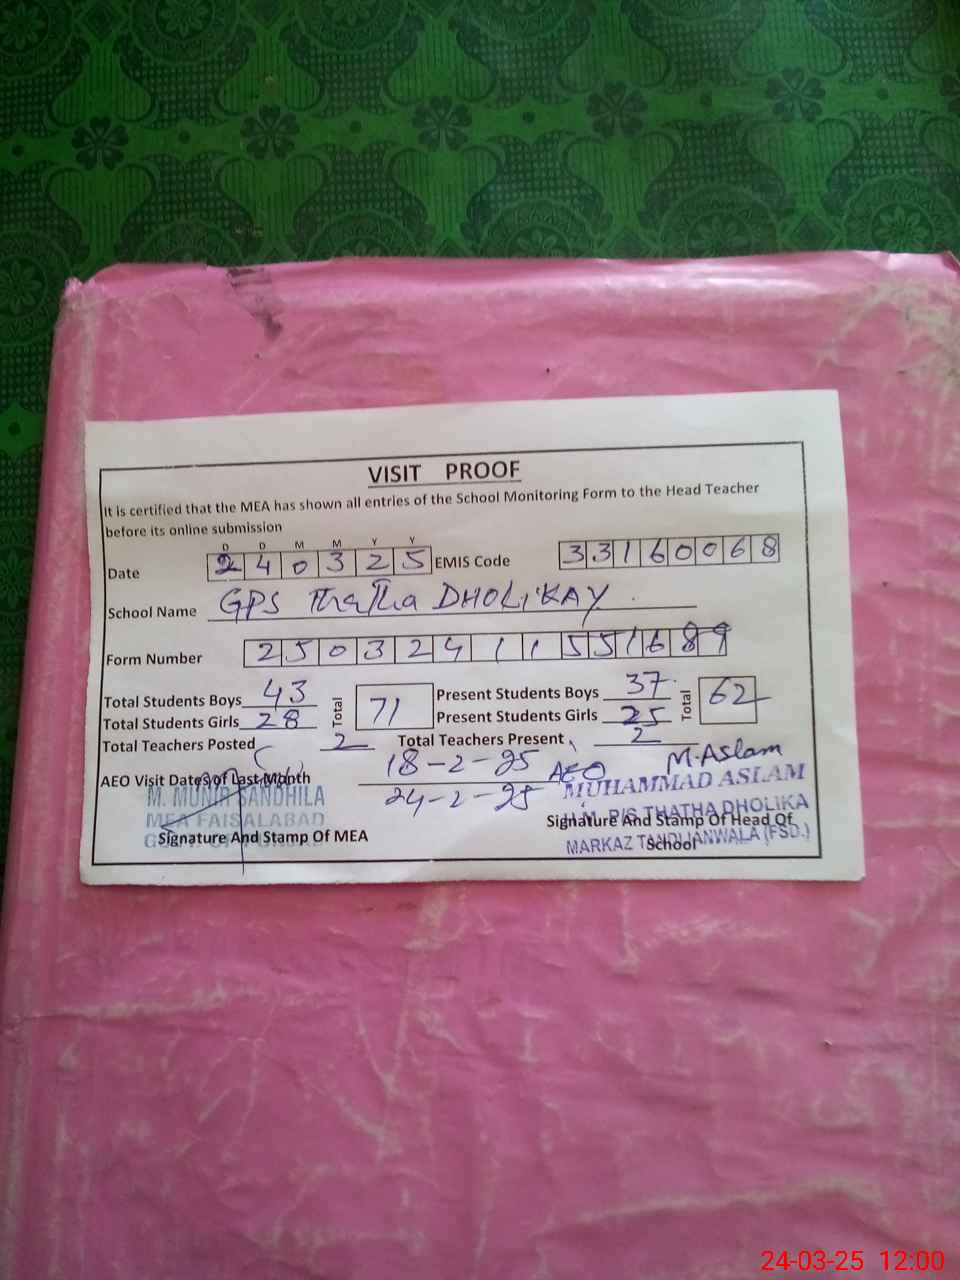 VISIT PROOF
It is certified that the MEA has shown all entries of the School Monitoring Form to the Head Teacher
before its online submission
D D M M Y Y
Date 240325 EMIS Code 33160068
School Name GPS ThaTha DHOLiKAY
Form Number 25032411551689
Total Students Boys 43 Total 71 Present Students Boys 37 Total 62
Total Students Girls 28 Present Students Girls 25
Total Teachers Posted 2 Total Teachers Present 2
AEO Visit Dates of Last Month 18-2-25 AEO M.Aslam
24-2-25
M. MUNIR SANDHILA
MEA FAISALABAD
Signature And Stamp Of MEA
MUHAMMAD ASLAM
P/S THATHA DHOLIKA
Signature And Stamp Of Head Of
School
MARKAZ TANDLIANWALA (FSD.)
24-03-25 12:00